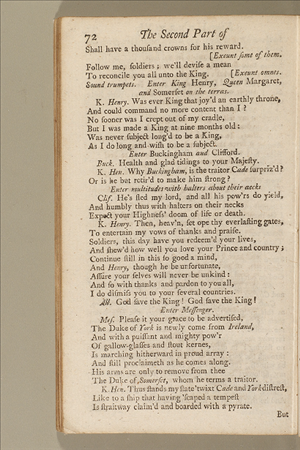 72 The Second Part of
Shall have a thousand crowns for his reward.
[Exeunt some of them.
Follow me, soldiers; we'll devise a mean
To reconcile you all unto the King. [Exeunt omnes.
Sound trumpets. Enter King Henry, Queen Margaret,
and Somerset on the terras.
K. Henry. Was ever King that joy'd an earthly throne,
And could command no more content than I?
No sooner was I crept out of my cradle,
But I was made a King at nine months old:
Was never subject long'd to be a King,
As I do long and wish to be a subject.
Enter Buckingham and Clifford.
Buck. Health and glad tidings to your Majesty.
K. Hen. Why Buckingham, is the traitor Cade surpriz'd?
Or is he but retir'd to make him strong?
Enter multitudes with halters about their necks
Clif. He's fled my lord, and all his pow'rs do yield,
And humbly thus with halters on their necks
Expect your Highness' doom of life or death.
K. Henry. Then, heav'n, set ope thy everlasting gates,
To entertain my vows of thanks and praise.
Soldiers, this day have you redeem'd your lives,
And shew'd how well you love your Prince and country;
Continue still in this so good a mind,
And Henry, though he be unfortunate,
Assure your selves will never be unkind:
And so with thanks and pardon to you all,
I do dismiss you to your several countries.
All. God save the King! God save the King!
Enter Messenger.
Mes. Please it your grace to be advertised,
The Duke of York is newly come from Ireland,
And with a puissant and mighty pow'r
Of gallow-glasses and stout kernes,
Is marching hitherward in proud array:
And still proclaimeth as he comes along,
His arms are only to remove from thee
The Duke of Somerset, whom he terms a traitor.
K. Hen. Thus stands my state 'twixt Cade and York distrest,
Like to a ship that having 'scaped a tempest
Is straitway claim'd and boarded with a pyrate.
But